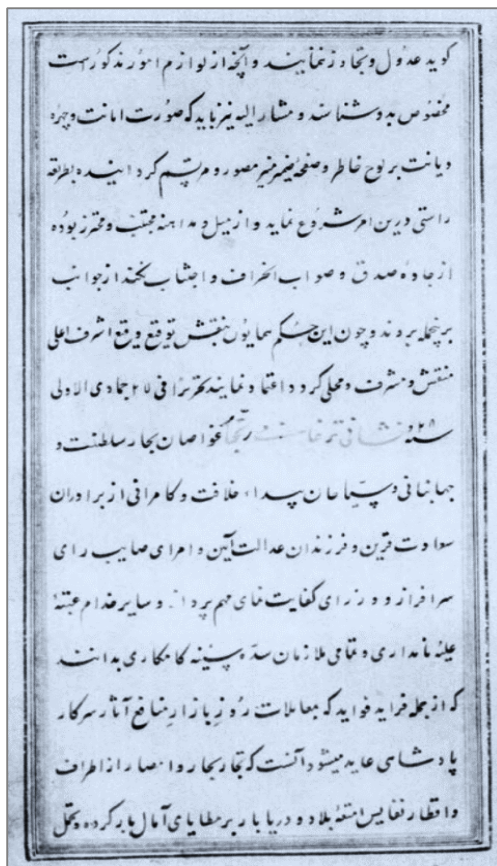 کوید عدول و تجاوز ننمایند و آنچه از لوازم امور مذکورست
مخصوص بدو شناسند و مشار الیه نیز باید که صورت امانت و چهره
دیانت بر لوح خاطر و صفحهٔ ضمیر منیر مصور و مرتسم کردانیده بطریقه
راستی درین امر شروع نماید و از میل و مداهنه مجتنب و محترز بوده
از جادهٔ صدق و صواب انحراف و اجتناب نکند از جوانب
برینجمله بروند و چون این حکم همایون بنقش توقیع وقیع اشرف اعلی
منقش و مشرف و محلی کردد اعتماد نمایند تحریرا فی ۲۷ جمادی الاولی
نشانی غواصان بحار سلطنت و
جهانبانی و سیاحان بیداء خلافت و کامرانی از برادران
سعادت قرین و فرزندان عدالت آیین و امرای صایب رای
سرافراز و وزرای کفایت نمای مهم پرداز و سایر خدام عتبهٔ
علیهٔ نامداری و تمامی ملازمان سدهٔ سنیه کامکاری بدانند
که از جمله فراید فواید که معاملات روز بازار منافع آثار سرکار
پادشاهی عاید میشود آنست که تجار بحار و امصار از اطراف
و اقطار نفایس امتعهٔ بلاد و دریا بار بر مطایای آمال بار کرده و تحمل